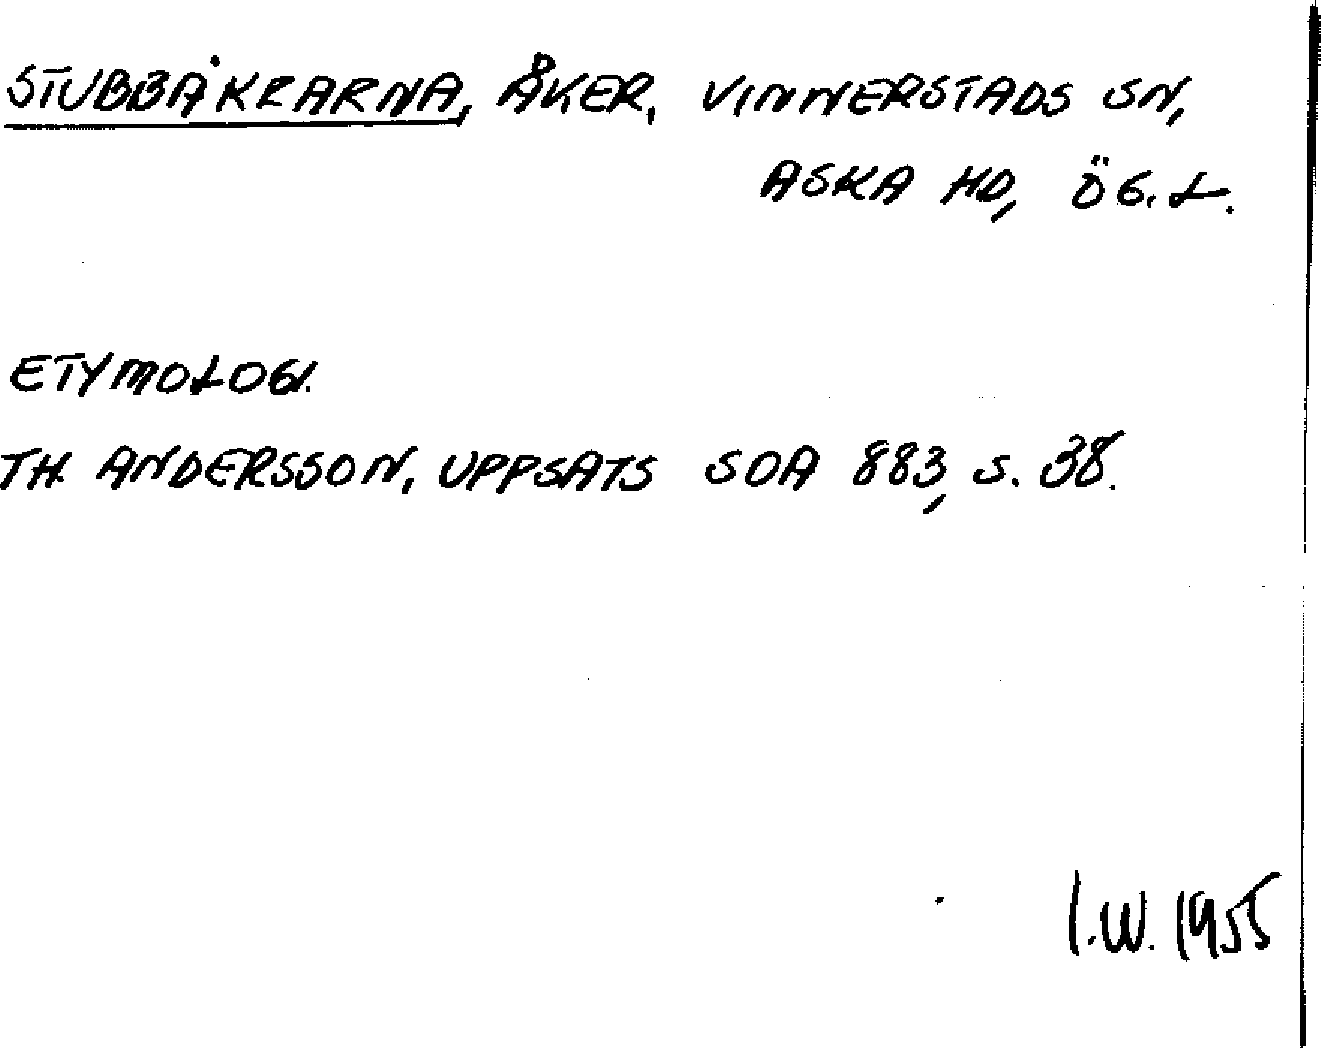 STUBBÅKRARNA, ÅKER, VINNERSTADS SN,
ASKA HD, ÖG. L.
ETYMOLOGI.
TH. ANDERSSON, UPPSATS SOA 883, S. 38.
I.W. 1955